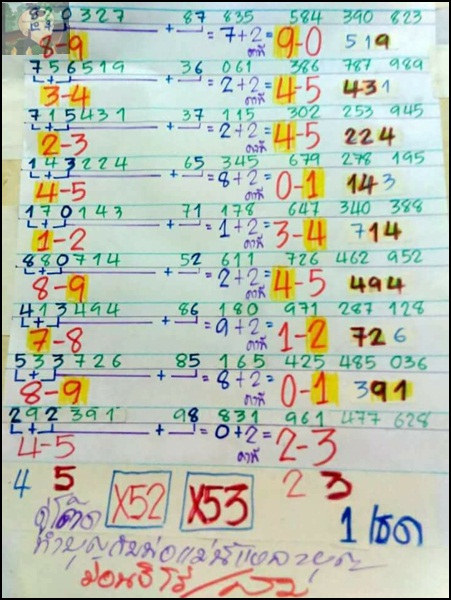 820327 87 835 584 390 823
8-9 + = 7+2= 9-0 519
คงที่
756519 36 061 386 787 989
3-4 + = 2+2= 4-5 431
คงที่
715431 37 115 302 253 945
2-3 + = 2+2= 4-5 224
คงที่
143224 65 345 679 278 195
4-5 + = 8+2= 0-1 143
คงที่
170143 71 178 647 340 388
1-2 + = 1+2= 3-4 714
คงที่
880714 52 611 726 462 952
8-9 + = 2+2= 4-5 494
คงที่
413494 86 180 971 287 128
7-8 + = 9+2= 1-2 726
คงที่
533726 85 165 425 485 036
8-9 + = 8+2= 0-1 391
คงที่
292391 98 831 961 477 628
4-5 + = 0+2= 2-3
คงที่
4 5 X52 X53 2 3
1 เซต